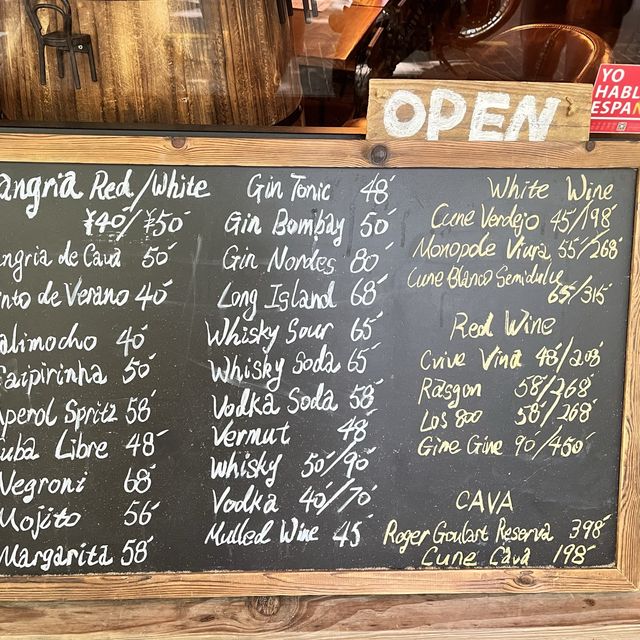 OPEN
YO
HABL
ESPAN
angria Red/White
¥40/¥50
ngria de Cava 50
nto de Verano 40
alimocho 40
aipirinha 50
Aperol Spritz 58
uba Libre 48
Negroni 68
Mojito 56
Margarita 58
Gin Tonic 48
Gin Bombay 50
Gin Nordes 80
Long Island 68
Whisky Sour 65
Whisky Soda 65
Vodka Soda 58
Vermut 48
Whisky 50/90
Vodka 40/70
Mulled Wine 45
White Wine
Cune Verdejo 45/198
Monopole Viura 55/268
Cune Blanco Semidulce
65/315
Red Wine
Vina 48/208
Rasgon 58/268
Los 800 58/268
Gine Gine 90/450
CAVA
Roger Goulart Reserva 398
Cune Cava 198